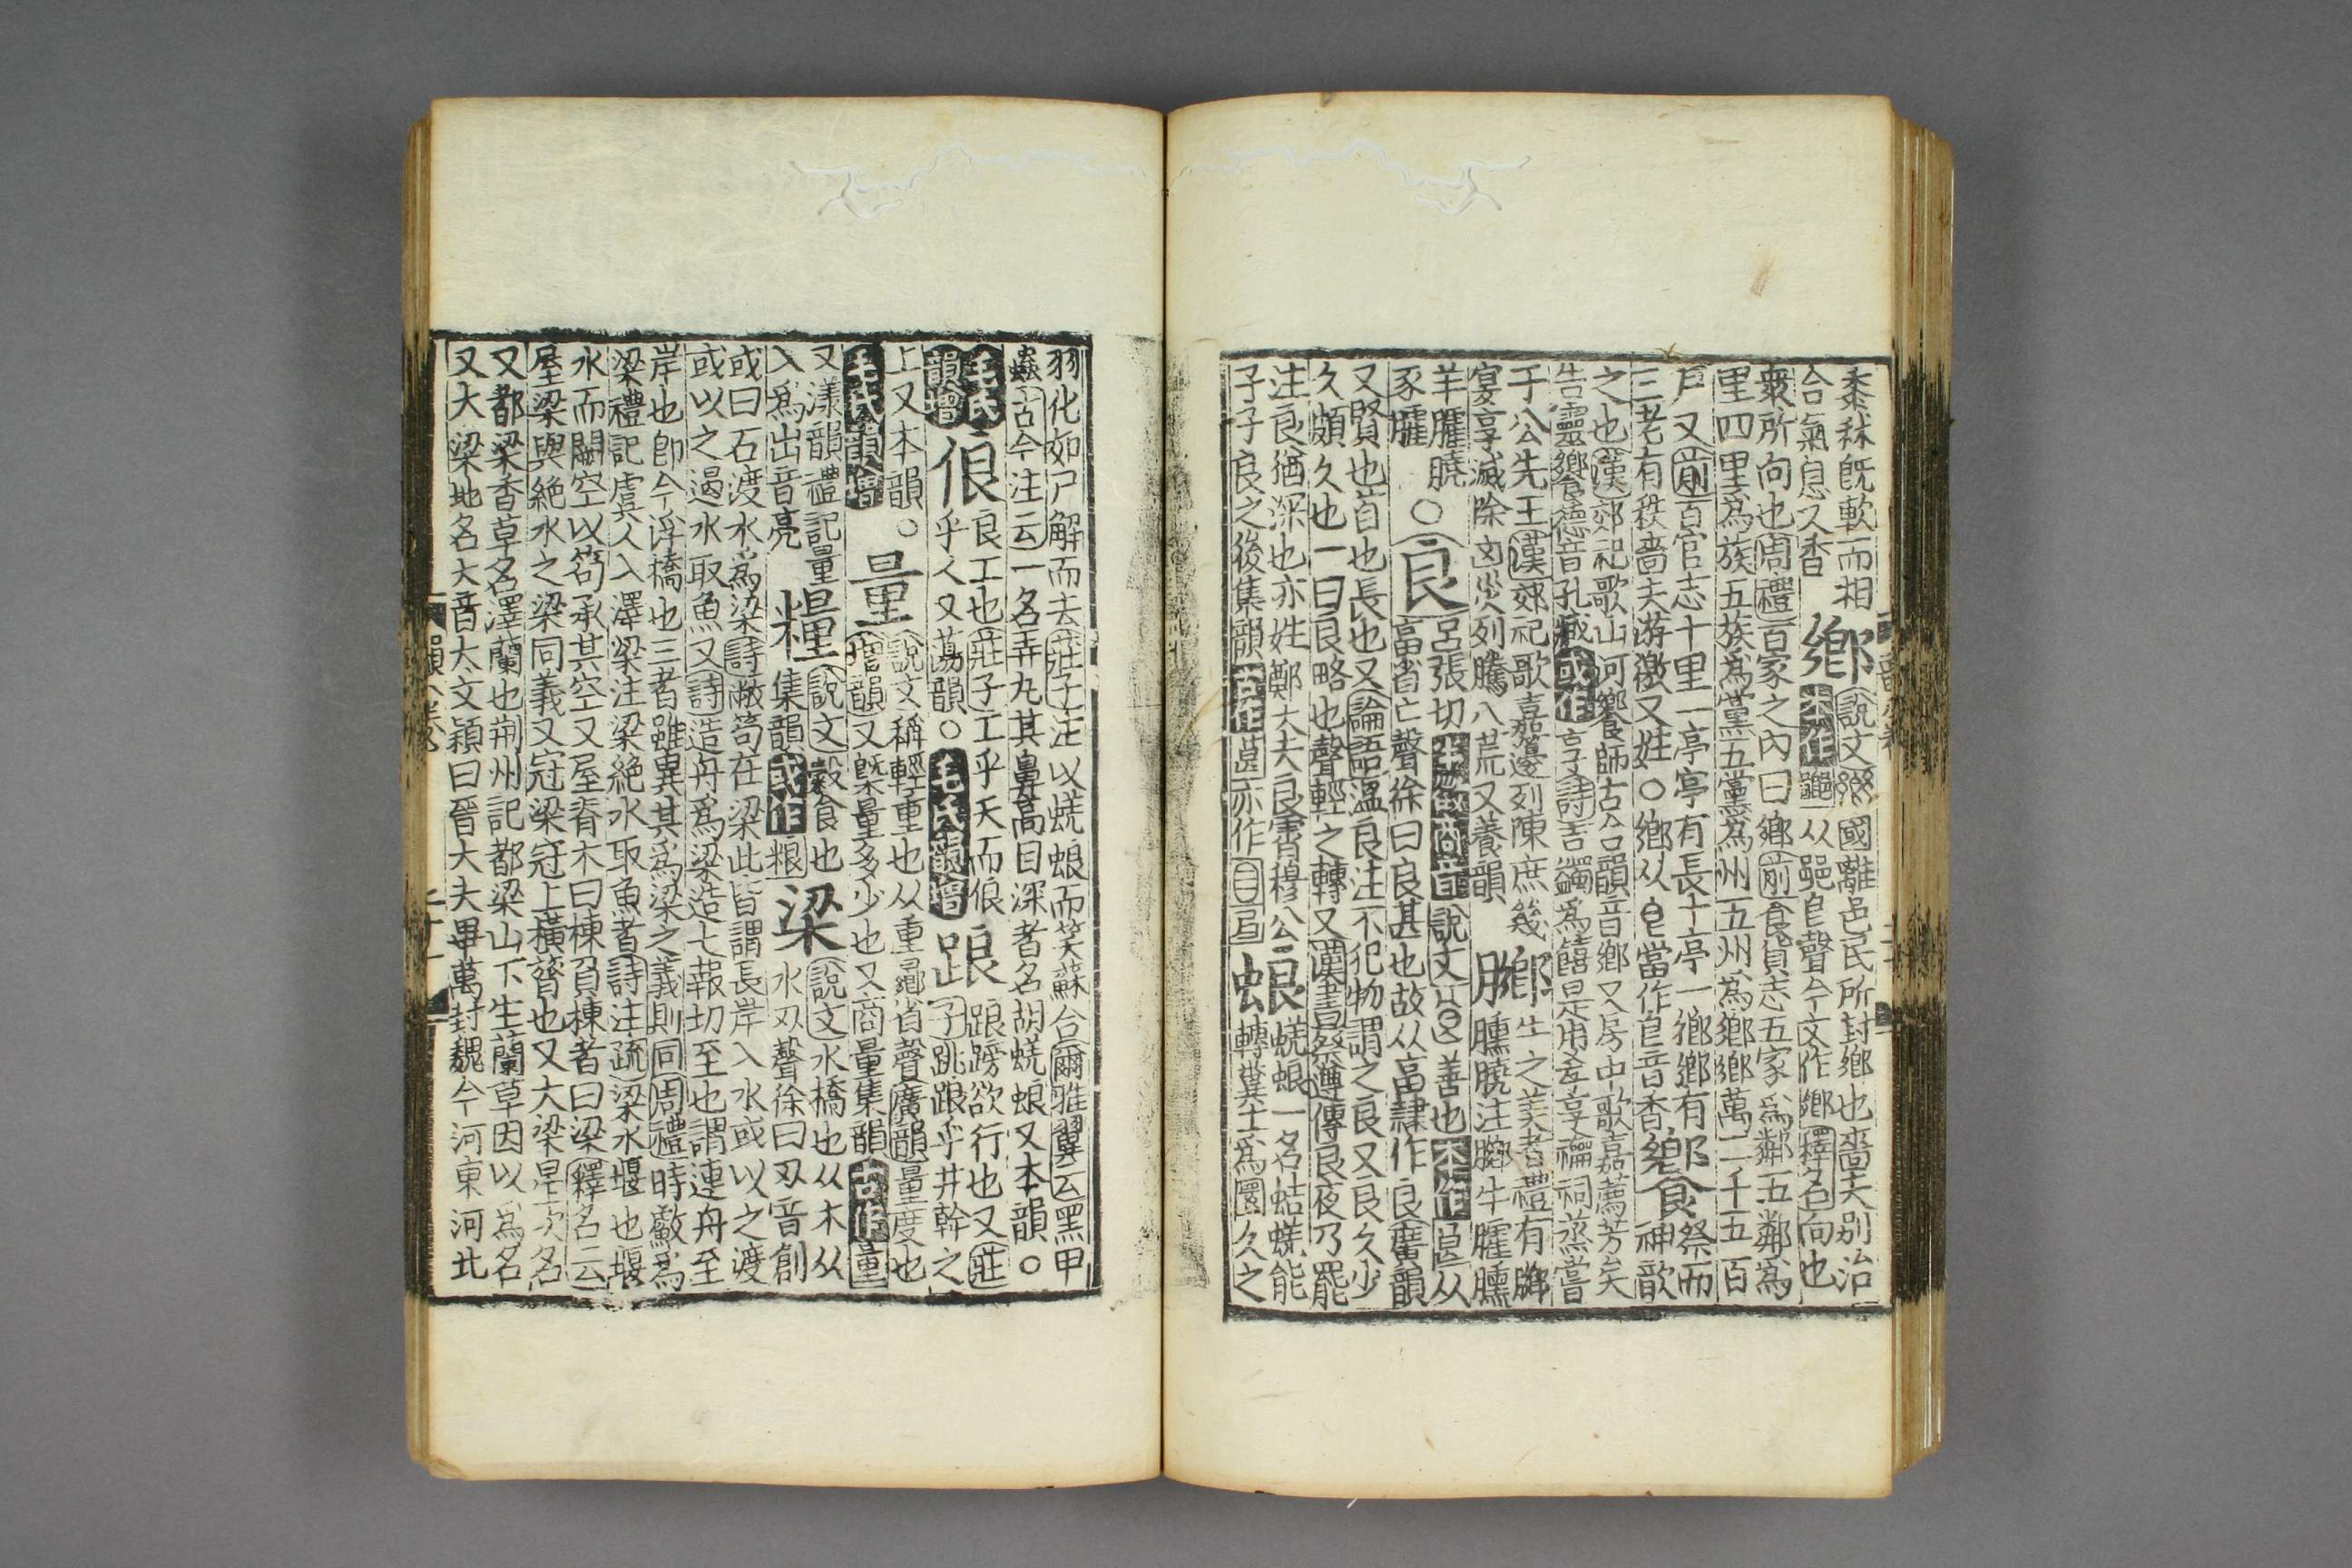 黍秫既軟而相
合氣息又香
鄉
說文鄉國離邑民所封鄉也嗇夫別治
本作𨞰从𨛜皀聲今文作鄉釋名向也
衆所向也周禮百家之內曰鄉前食貨志五家爲鄰五鄰爲
里四里爲族五族爲黨五黨爲州五州爲鄉鄉萬二千五百
戶又前百官志十里一亭亭有長十亭一鄉鄉有
三老有秩嗇夫游徼又姓○鄉从皀當作皀音香
饗
祭而
神歆
之也漢郊祀歌山河饗師古合韻音鄉又房中歌嘉薦芳矣
告靈饗德音孔臧或作享詩吉蠲爲饎是用孝享禴祠烝嘗
于公先王漢郊祀歌嘉籩列陳庶幾
宴享滅除凶災列騰八荒又養韻
膷
牛之美者禮有膷
臐膮注膷牛臛臐
羊臛膮
豕臛
○
良
呂張切半徵商音說文善也本作㫐从
畗省亡聲徐曰良甚也故从畗隸作良廣韻
又賢也首也長也又論語溫良注不犯物謂之良又良久少
久頗久也一曰良略也聲輕之轉又漢書蔡遵傳良夜乃罷
注良猶深也亦姓鄭大夫良霄穆公
子子良之後集韻古作㫐亦作
蜋
蜣蜋一名蛣蜣能
轉糞土爲圜久之
羽化如尸解而去莊子注以蜣蜋而笑蘇合爾雅翼云黑甲
蟲古今注云一名弄丸其鼻高目深者名胡蜣蜋又本韻○
毛氏
韻增
俍
良工也莊子工乎天而俍
乎人又蕩韻○毛氏韻增
踉
踉蹡欲行也又莊
子跳踉乎井幹之
上又本韻○
毛氏韻增
量
說文稱輕重也从重曏省聲廣韻量度也
增韻又槩量多少也又商量集韻古作量
又漾韻禮記量
入爲出音亮
糧
說文穀食也
集韻或作粮
梁
說文水橋也从木从
水刅聲徐曰刅音創
或曰石渡水爲梁詩敝笱在梁此皆謂長岸入水或以之渡
或以之遏水取魚又詩造舟爲梁造七報切至也謂連舟至
岸也卽今浮橋也三者雖異其爲梁之義則同周禮時㪇爲
梁禮記虞人入澤梁注梁絶水取魚者詩注疏梁水堰也堰
水而闕空以笱承其空又屋脊木曰棟負棟者曰梁釋名云
堅梁與絶水之梁同義又冠梁冠上橫脊也又大梁星次名
又都梁香草名澤蘭也荊州記都梁山下生蘭草因以爲名
又大梁地名大音太文穎曰晉大夫畢萬封魏今河東河北